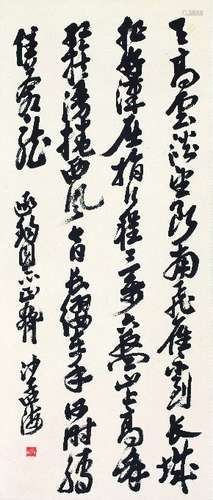 天高雲淡望斷南飛雁不到長城
非好漢屈指行程二萬六盤山上高峰
紅旗漫捲西風今日長纓在手何時縛
住蒼龍
同志正腕 沙孟海